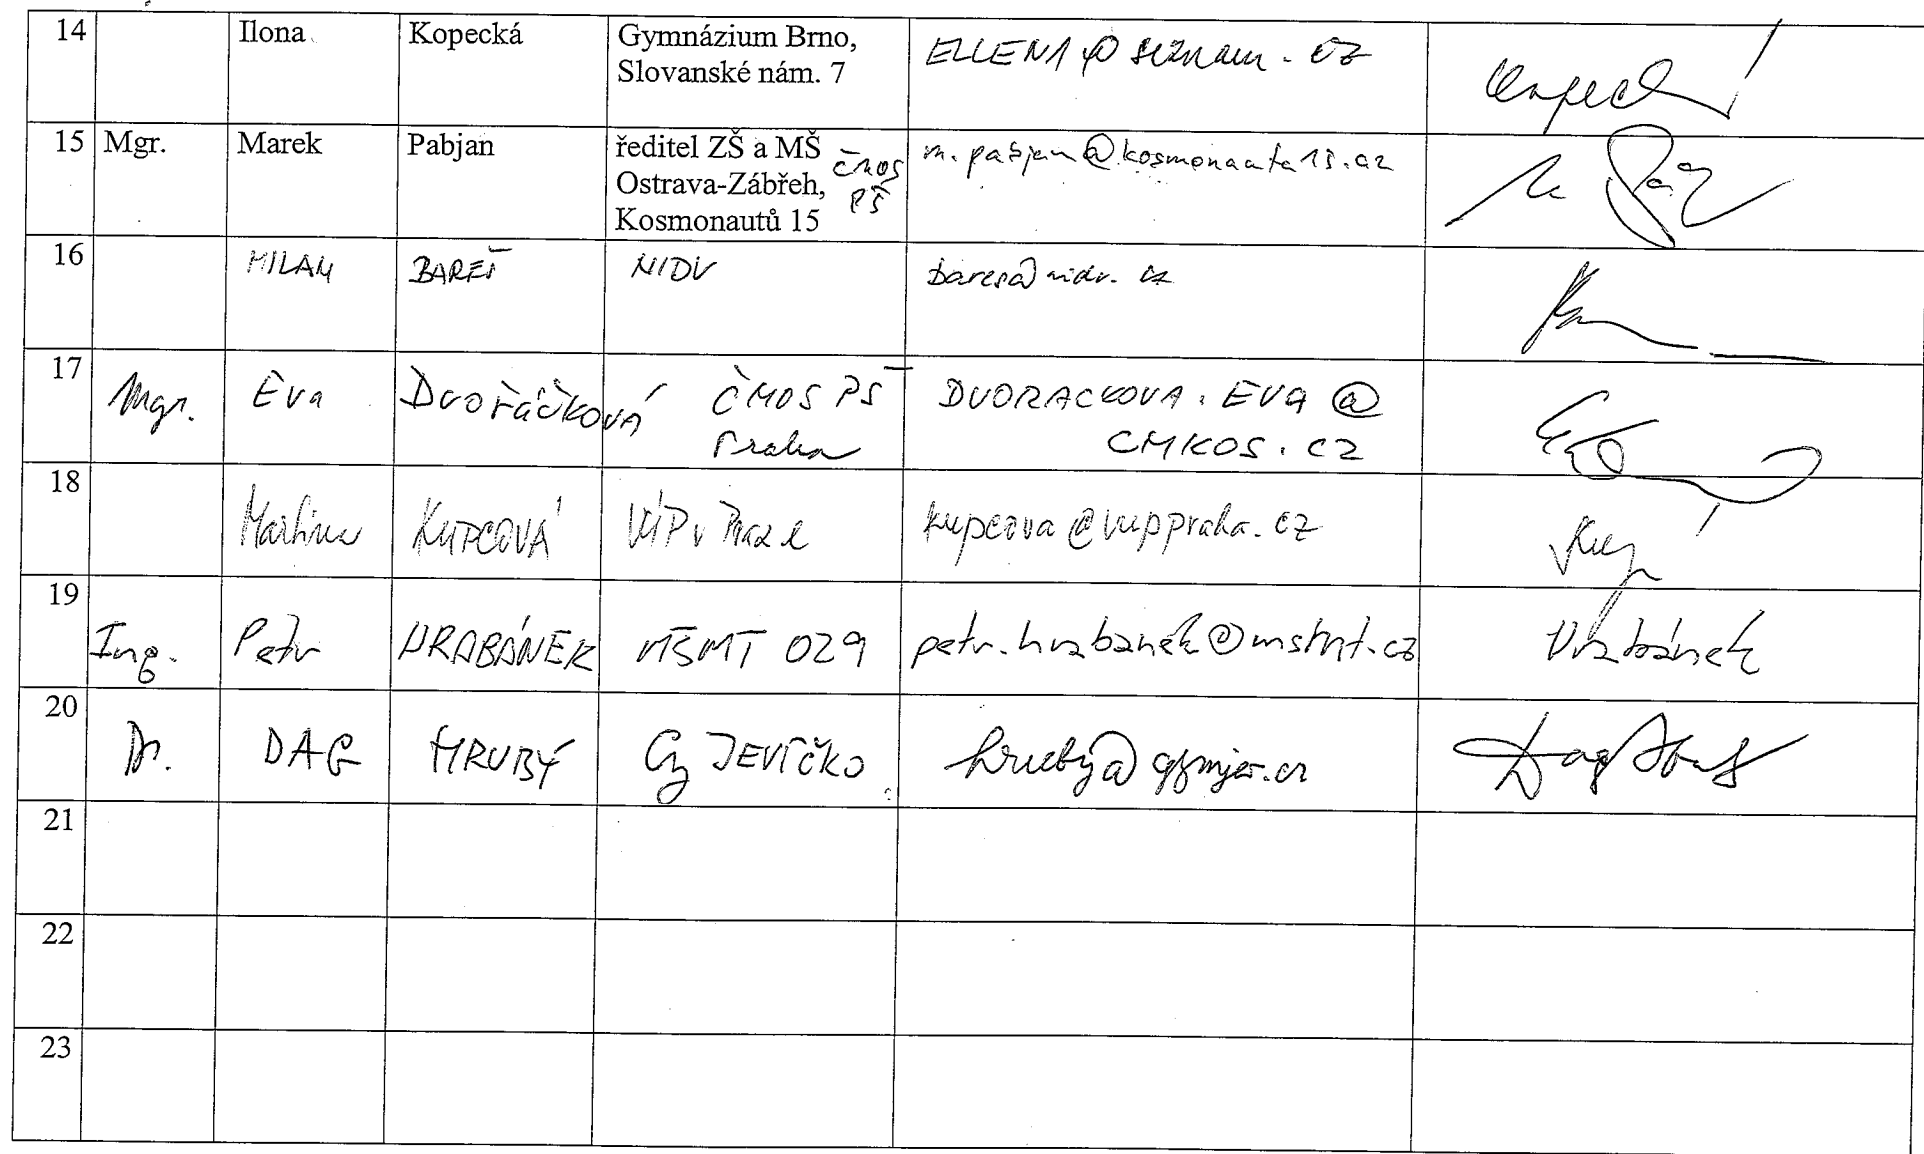 14 Ilona Kopecká Gymnázium Brno, ELLEN1@seznam.cz
Slovanské nám. 7
15 Mgr. Marek Pabjan ředitel ZŠ a MŠ ČMOS m.pabjan@kosmonautu15.cz
Ostrava-Zábřeh, PŠ
Kosmonautů 15
16 MILAN BAREŠ NIDV bares@nidv.cz
17 Mgr. Eva Dvořáčková ČMOS PŠ DVORACKOVA.EVA@
Praha CMKOS.CZ
18 Martina KUPCOVÁ VÚP v Praze kupcova@vuppraha.cz
19 Ing. Petr HRABÁNEK MŠMT 029 petr.hrabanek@msmt.cz Hrabánek
20 Dr. DAG HRUBÝ Gy JEVÍČKO hruby@gymjev.cz
21
22
23